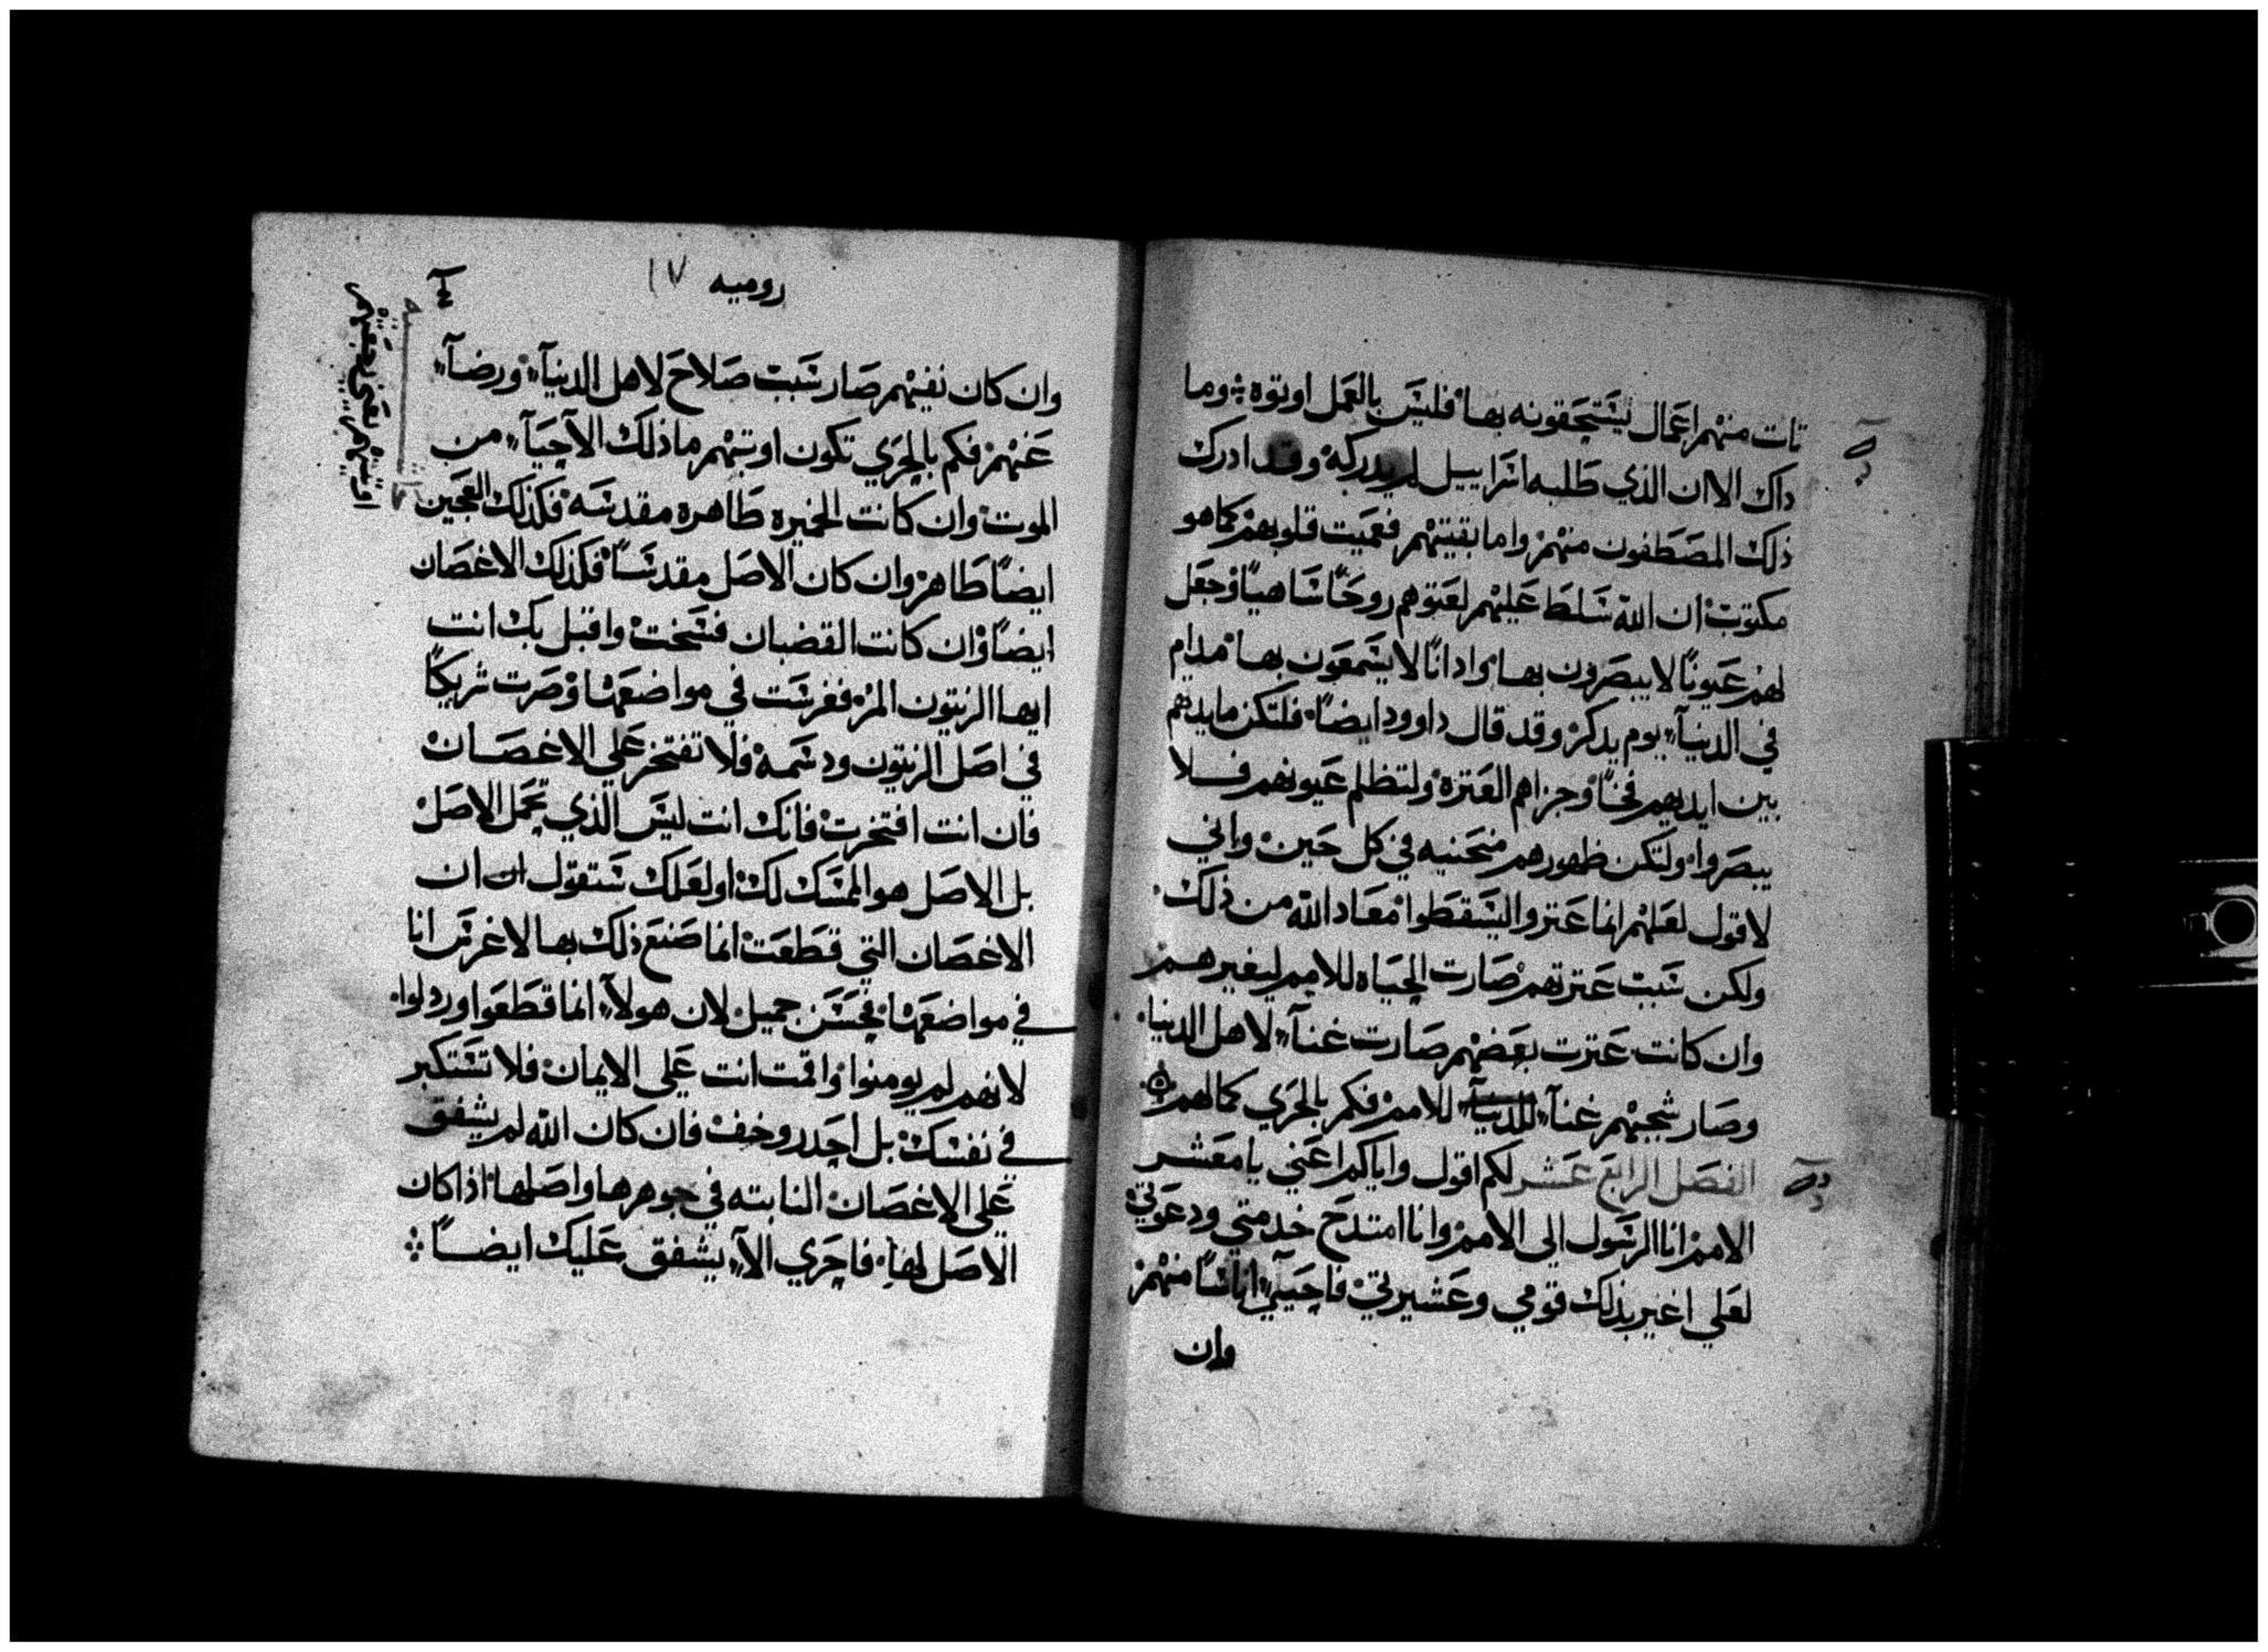 تات منهم اعمال يستحقونه بها فليس بالعمل اوتوه وما
داك الا ان الذي طلبه اسراييل لم يدركه وقد ادرك
ذلك المصطفون منهم واما بقيتهم فعميت قلوبهم كما هو
مكتوب ان الله سلط عليهم لعتوهم روحًا ساهيًا وجعل
لهم عيونًا لا يبصرون بها وادانًا لا يسمعون بها مدام
في الدنيآء يوم يدكر وقد قال داوود ايضًا فلتكن مايدهم
بين ايديهم فخًا وجزاهم العترة ولتظلم عيونهم فلا
يبصروا ولتكن ظهورهم منحنيه في كل حين واني
لاقول لعلهم انما عتروا ليسقطوا معاد الله من ذلك
ولكن سبب عترتهم صارت الحياه للامم ليغيرهم
وان كانت عترت بعضهم صارت غنآء لاهل الدنيا
وصار شجبهم غنآء للامم فكم بالحري كمالهم
الفصل الرابع عشر لكم اقول واياكم اعني يا معشر
الامم انا الرسول الى الامم وانا امتدح خدمتي ودعوتي
لعلي اغير بذلك قومي وعشيرتي فاحيي اناسًا منهم
وان
روميه ١٧
وان كان نفيهم صار سبب صلاح لاهل الدنيآء ورضآء
عنهم فكم بالحري تكون اوبتهم ما ذلك الا حيآء من
الموت وان كانت الخميره طاهره مقدسه فكذلك العجين
ايضًا طاهر وان كان الاصل مقدسًا فكذلك الاغصان
ايضًا وان كانت القضبان فسخت واقبل بك انت
ايها الزيتون المر فغرست في مواضعها وصرت شريكًا
في اصل الزيتون ودسمه فلا تفتخر علي الاغصان
فان انت افتخرت فانك انت ليس الذي تحمل الاصل
بل الاصل هو الممسك لك او لعلك ستقول ان ان
الاغصان التي قطعت انما صنع ذلك بها لاغرس انا
في مواضعها فحسن جميل لان هولآء انما قطعوا وردلوا
لانهم لم يومنوا واقمت انت علي الايمان فلا تستكبر
في نفسك بل احدر وخف فان كان الله لم يشفق
علي الاغصان النابته في جوهرها واصلها اذا كان
الاصل لها فاحري الآء يشفق عليك ايضًا